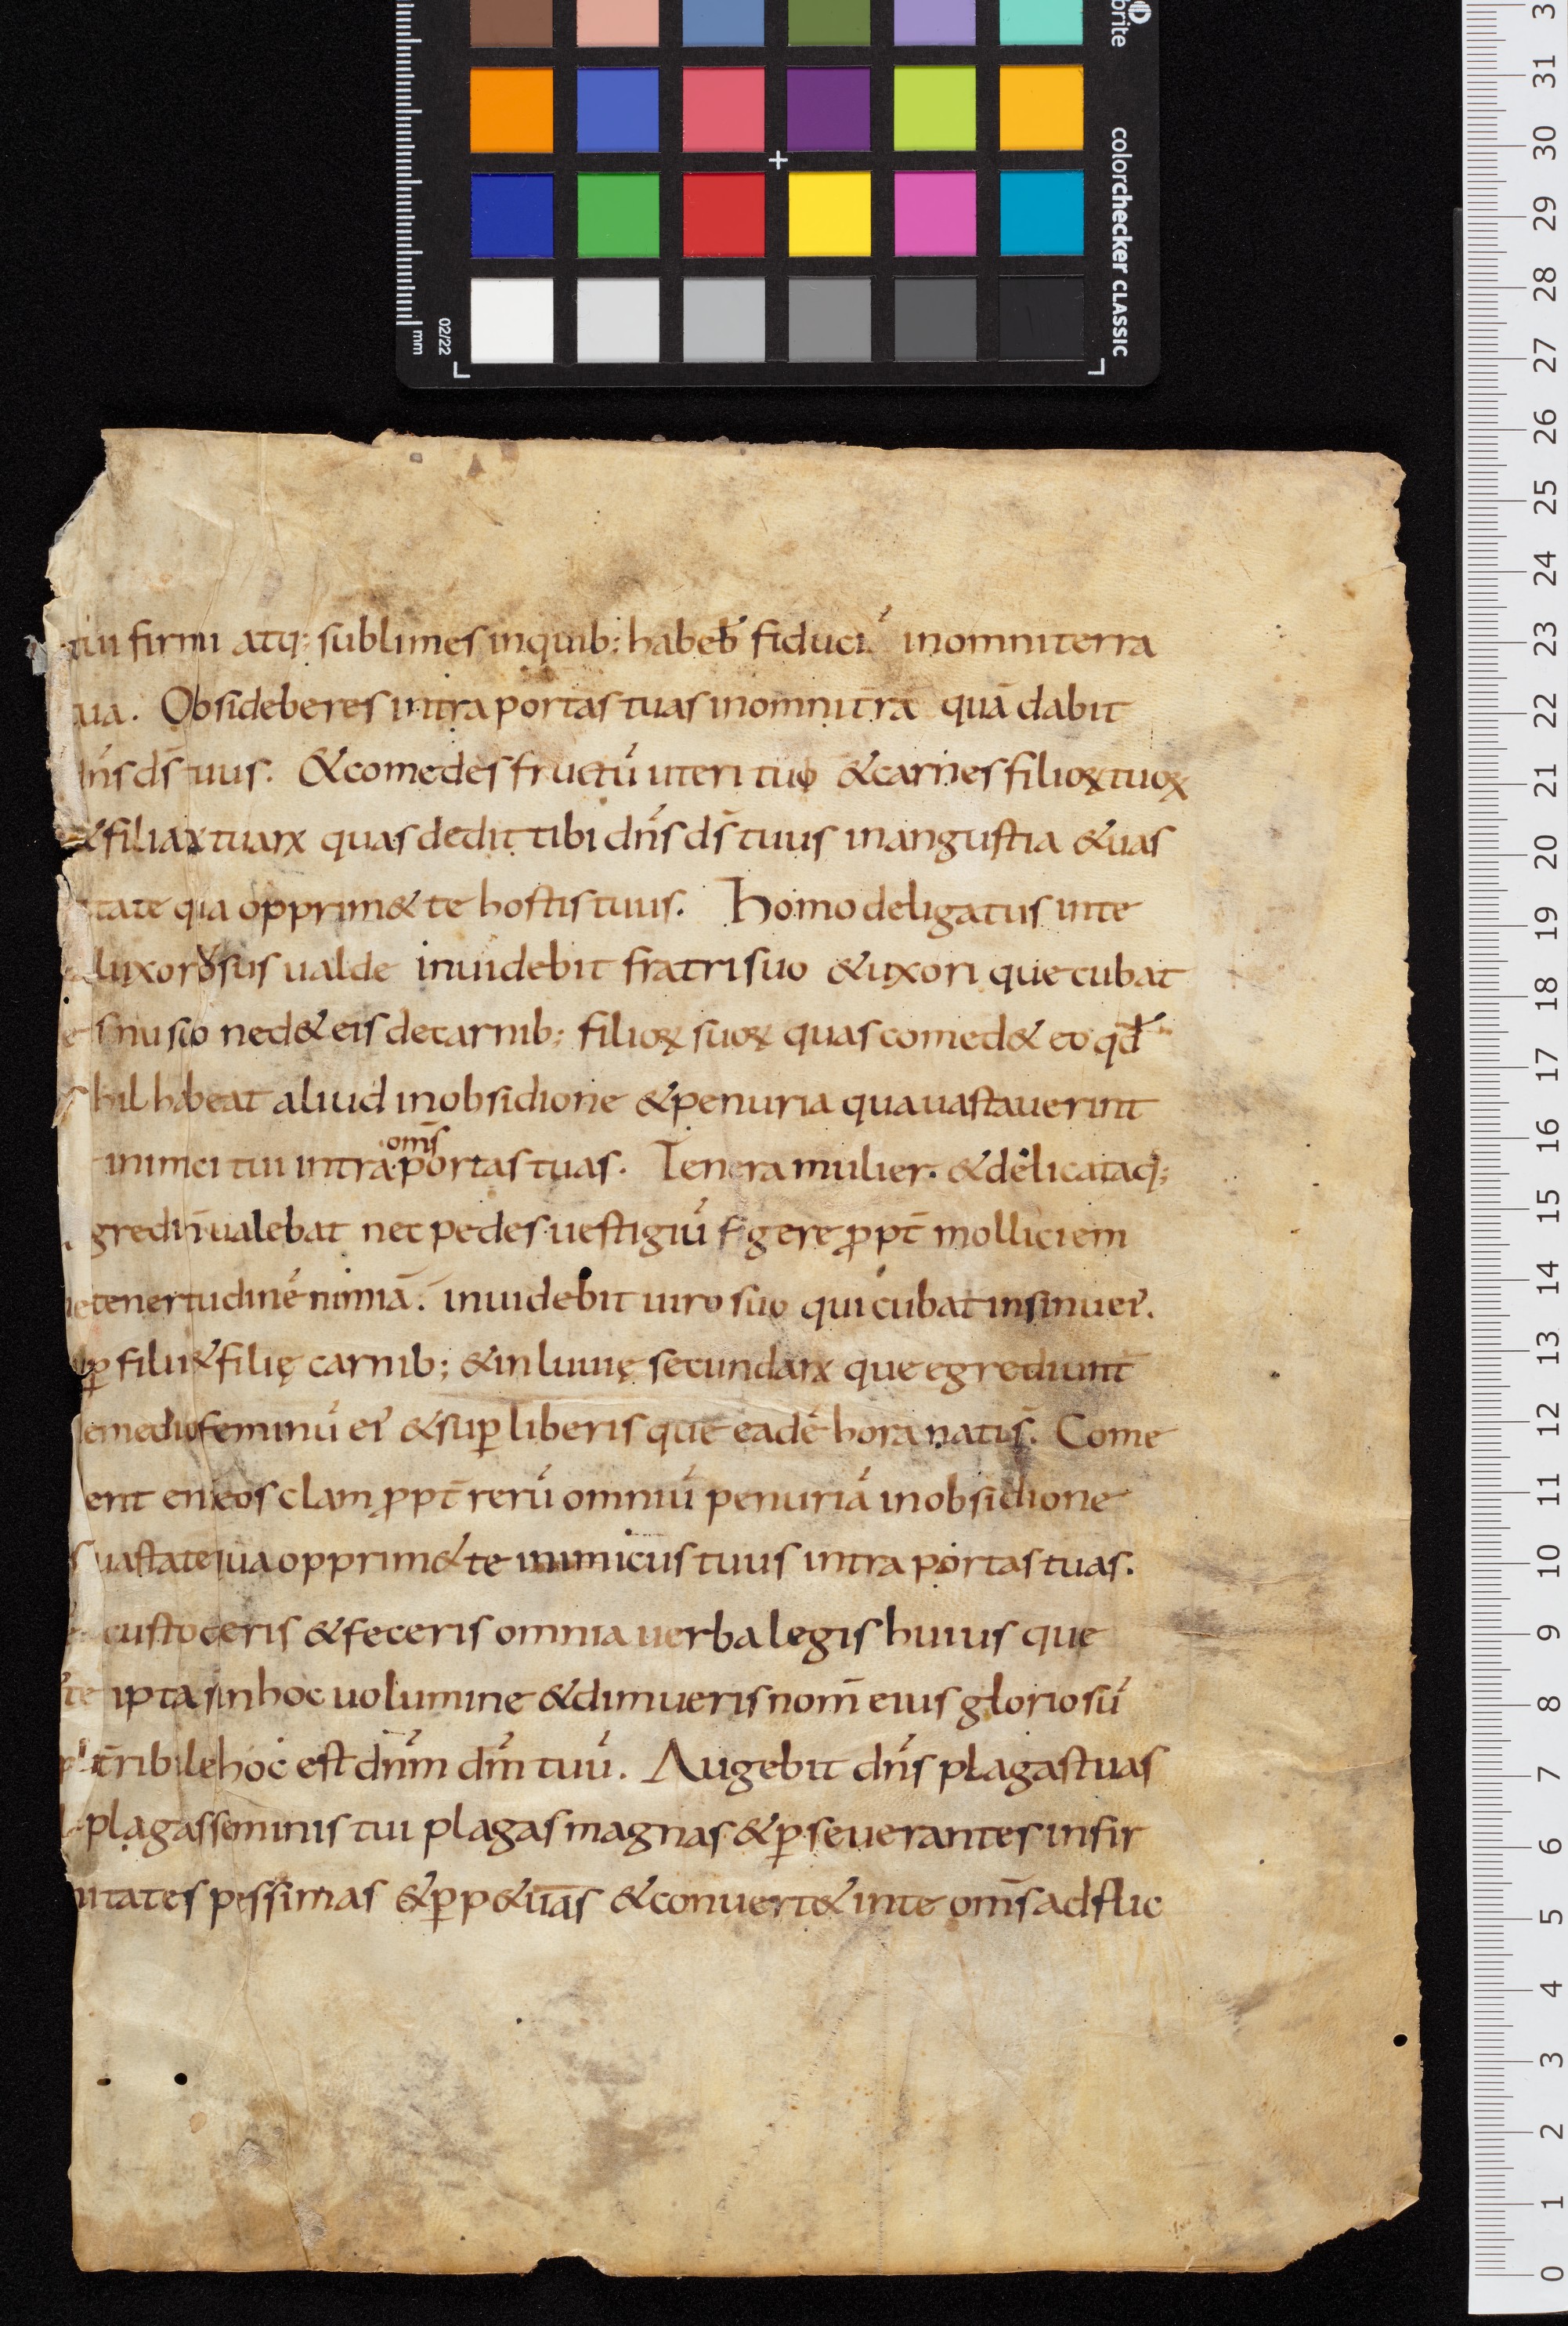 brite
colorchecker CLASSIC
mm
02/22
tui firmi atq; sublimes in quib; habeb̄ fiduci in omni terra
tua. Obsideberes intra portas tuas in omni tr̄a quā dabit
dn̄s ds̄ tuus. & comedes fructū uteri tuo & carnes filioꝝ tuoꝝ
& filiaꝝ tuaꝝ quas dedit tibi dn̄s ds̄ tuus in angustia & uas
tate qua opprim& te hostis tuus. Homo deligatus in te
& luxoriosus ualde inuidebit fratri suo & uxori que cubat
sinu suo ne d& eis de carnib; filioꝝ suoꝝ quas comed& eo qd̄
hil habeat aliud in obsidione & penuria qua uastauerint
inimici tui intra oms̄ portas tuas. Tenera mulier. & delicata q;
gredi n̄ ualebat nec pedes uestigiū figere ꝓpt̄ molliciem
& tenertudinē nimiā. inuidebit uiro suo qui cubat in sinu ei'.
sup̱ filii & filię carnib; & inluuię secundaꝝ que egrediunt̄
e medio feminū ei' & sup̱ liberis que eadē hora natis̄. Come
ent eni eos clam ꝓpt̄ rerū omniū penuriā in obsidione
uastate qua opprim& te inimicus tuus intra portas tuas.
custoderis & feceris omnia uerba legis huius que
ipta s in hoc uolumine & dimueris nom̄ eius gloriosū
tribile hoc est dnm̄ dm̄ tuū. Augebit dn̄s plagas tuas
plagas seminis tui plagas magnas & p̱seuerantes infir
mitates pessimas & p̱p&uas & conuert& in te oms̄ adflic
3
31
30
29
28
27
26
25
24
23
22
21
20
19
18
17
16
15
14
13
12
11
10
9
8
7
6
5
4
3
2
1
0